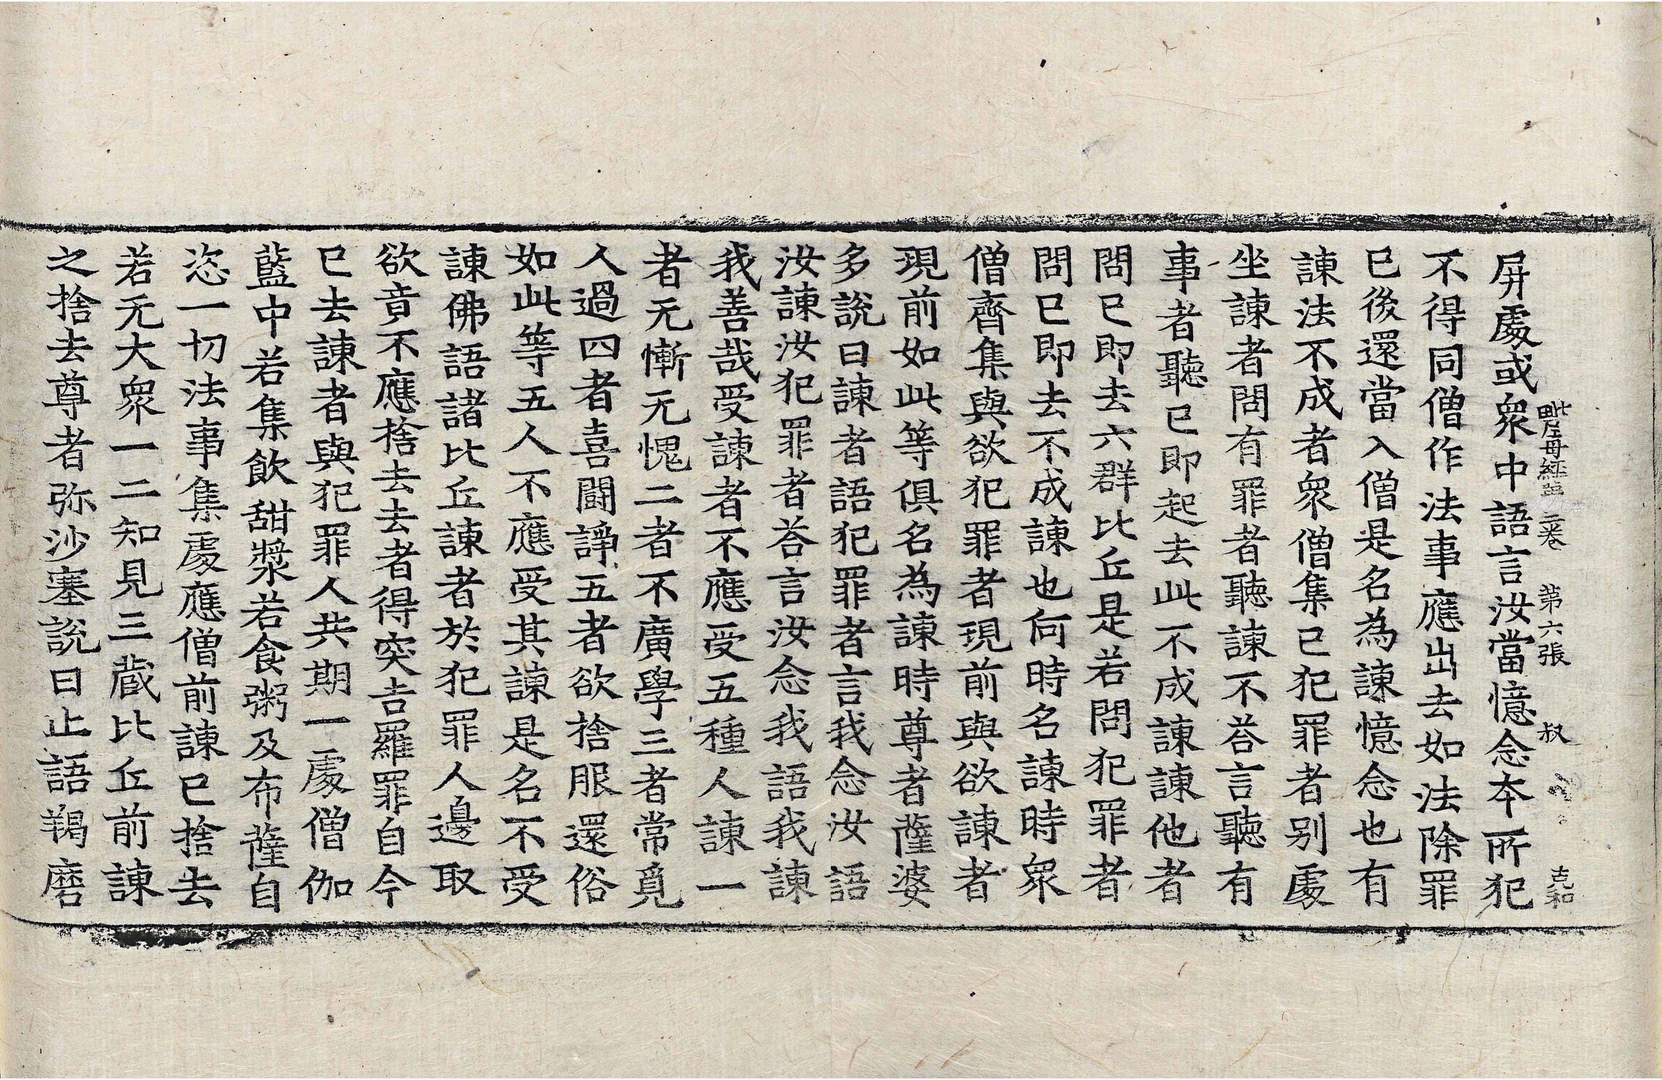 毗尼母經 三卷 第六張 叔 克和
屏處或衆中語言汝當憶念本所犯
不得同僧作法事應出去如法除罪
已後還當入僧是名為諫憶念也有
諫法不成者衆僧集已犯罪者別處
坐諫者問有罪者聽諫不荅言聽有
事者聽已即起去此不成諫諫他者
問已即去六群比丘是若問犯罪者
問已即去不成諫也何時名諫時衆
僧齊集與欲犯罪者現前與欲諫者
現前如此等俱名為諫時尊者薩婆
多說曰諫者語犯罪者言我念汝語
汝諫汝犯罪者荅言汝念我語我諫
我善哉受諫者不應受五種人諫一
者无慚无愧二者不廣學三者常覓
人過四者喜鬪諍五者欲捨服還俗
如此等五人不應受其諫是名不受
諫佛語諸比丘諫者於犯罪人邊取
欲竟不應捨去去者得突吉羅罪自今
已去諫者與犯罪人共期一處僧伽
藍中若集飲甜漿若食粥及布薩自
恣一切法事集處應僧前諫已捨去
若无大衆一二知見三藏比丘前諫
之捨去尊者弥沙塞說曰止語羯磨